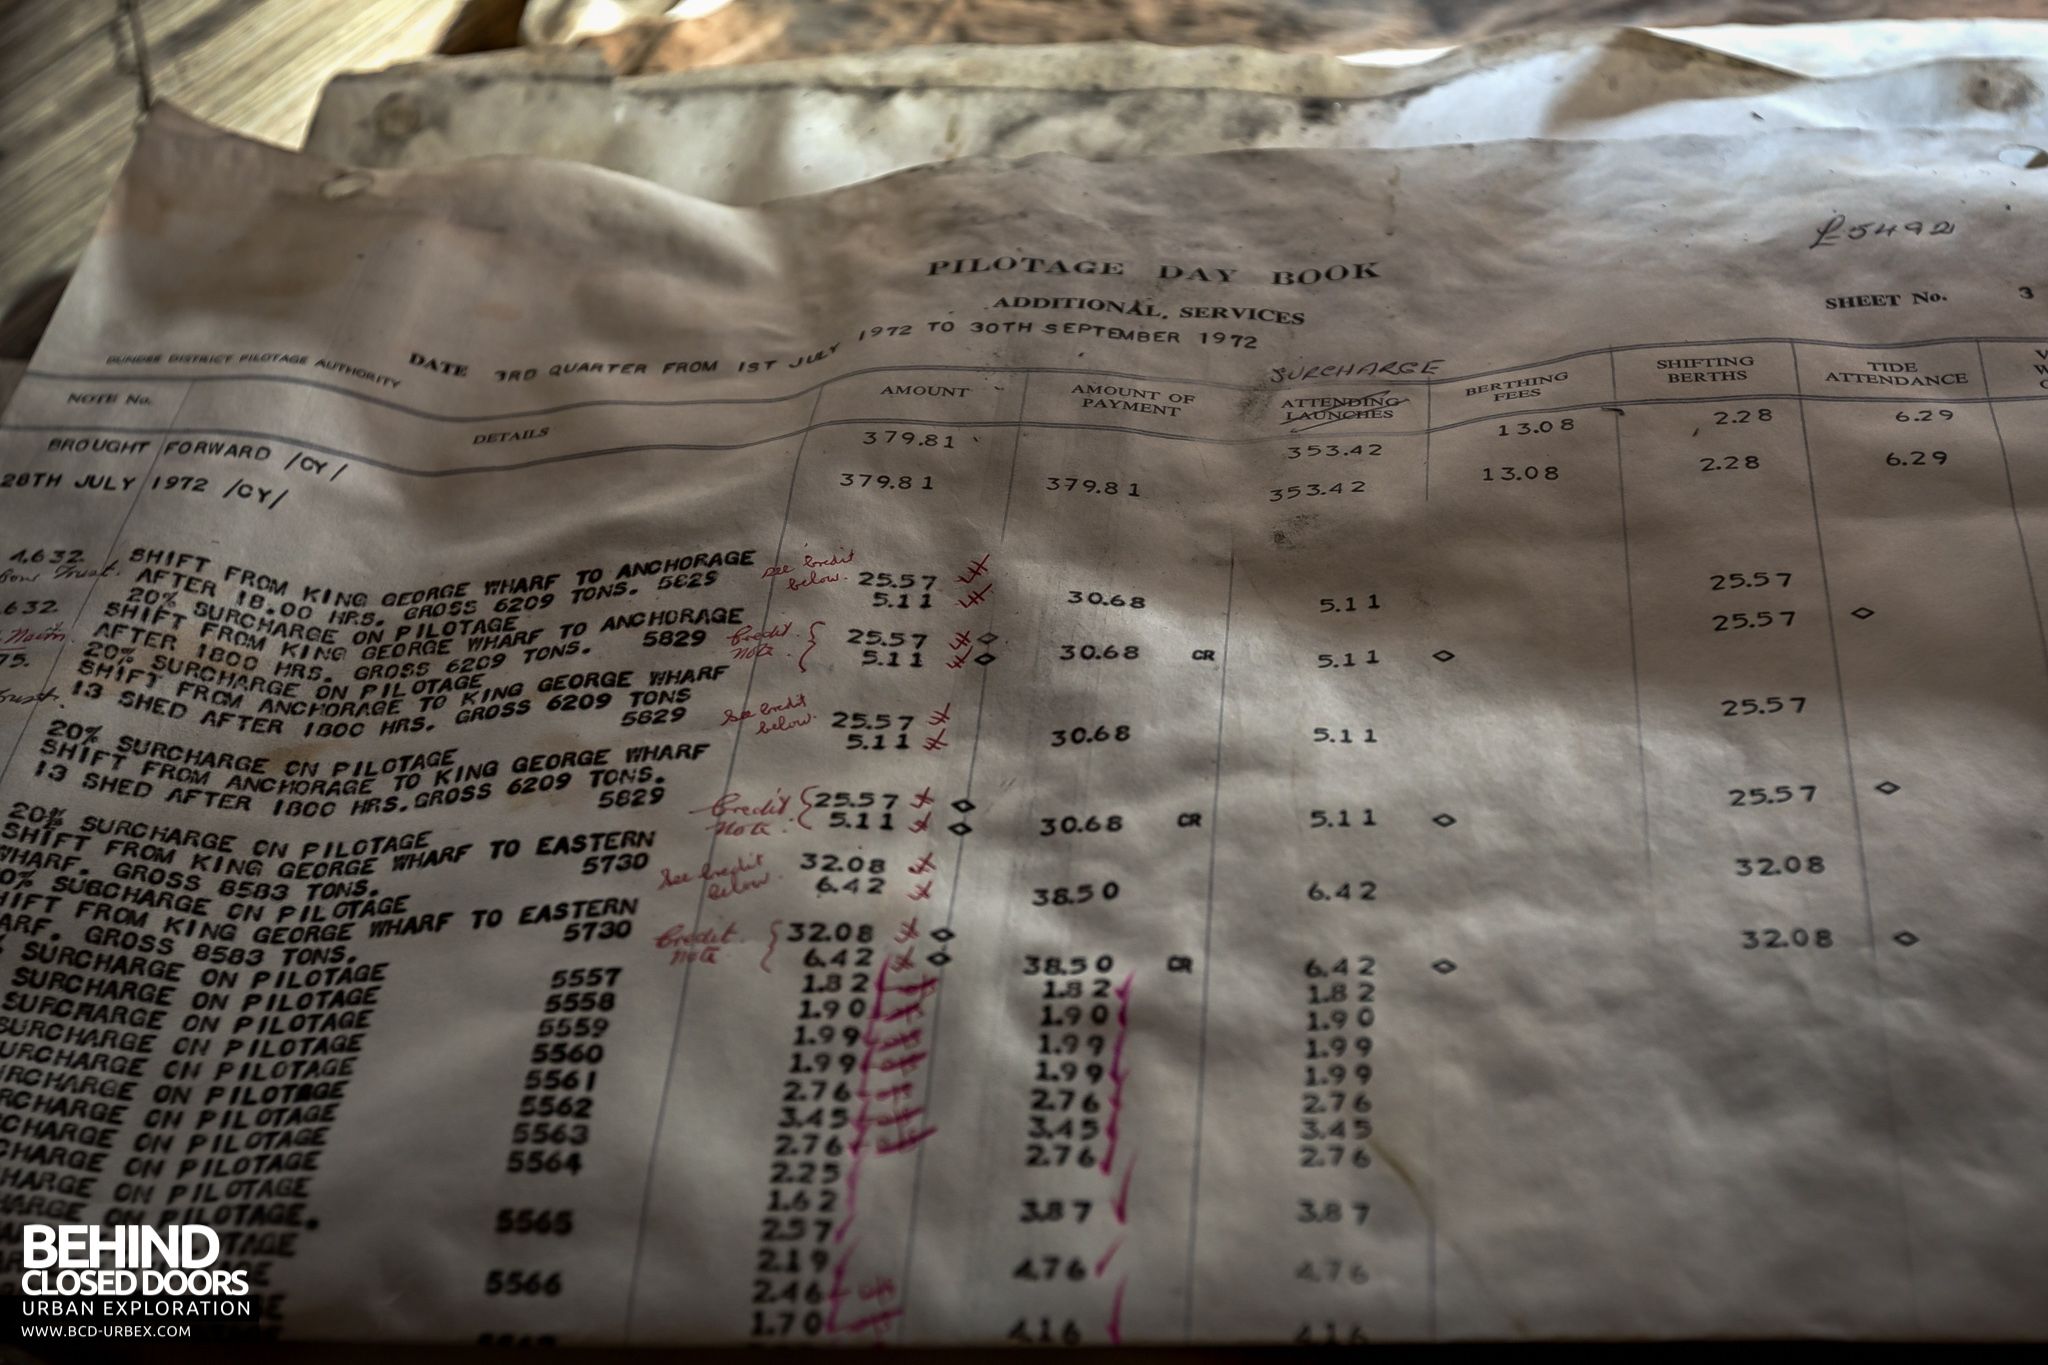 £5492
PILOTAGE DAY BOOK
ADDITIONAL SERVICES
SHEET No. 3
DUNDEE DISTRICT PILOTAGE AUTHORITY DATE 3RD QUARTER FROM 1ST JULY 1972 TO 30TH SEPTEMBER 1972
SURCHARGE
NOTE No. DETAILS AMOUNT AMOUNT OF PAYMENT ATTENDING LAUNCHES BERTHING FEES SHIFTING BERTHS TIDE ATTENDANCE
BROUGHT FORWARD /CY/ 379.81 353.42 13.08 2.28 6.29
28TH JULY 1972 /CY/ 379.81 379.81 353.42 13.08 2.28 6.29
4632 SHIFT FROM KING GEORGE WHARF TO ANCHORAGE see credit
Trust. AFTER 18.00 HRS. GROSS 6209 TONS. 5829 below. 25.57 25.57
20% SURCHARGE ON PILOTAGE 5.11 30.68 5.11
632 SHIFT FROM KING GEORGE WHARF TO ANCHORAGE
AFTER 1800 HRS. GROSS 6209 TONS. 5829 Credit 25.57 ◇ 25.57 ◇
75. 20% SURCHARGE ON PILOTAGE Note. 5.11 ◇ 30.68 CR 5.11 ◇
SHIFT FROM ANCHORAGE TO KING GEORGE WHARF
13 SHED AFTER 1800 HRS. GROSS 6209 TONS see credit
5829 below. 25.57 25.57
20% SURCHARGE ON PILOTAGE 5.11 30.68 5.11
SHIFT FROM ANCHORAGE TO KING GEORGE WHARF
13 SHED AFTER 1800 HRS. GROSS 6209 TONS.
5829 Credit 25.57 ◇ 25.57 ◇
20% SURCHARGE ON PILOTAGE Note. 5.11 ◇ 30.68 CR 5.11 ◇
SHIFT FROM KING GEORGE WHARF TO EASTERN
WHARF. GROSS 8583 TONS. 5730 see credit 32.08 32.08
0% SURCHARGE ON PILOTAGE below. 6.42 38.50 6.42
HIFT FROM KING GEORGE WHARF TO EASTERN
ARF. GROSS 8583 TONS. 5730 Credit 32.08 ◇ 32.08 ◇
% SURCHARGE ON PILOTAGE Note 6.42 ◇ 38.50 CR 6.42 ◇
SURCHARGE ON PILOTAGE 5557 1.82 1.82 1.82
SURCHARGE ON PILOTAGE 5558 1.90 1.90 1.90
SURCHARGE ON PILOTAGE 5559 1.99 1.99 1.99
URCHARGE ON PILOTAGE 5560 1.99 1.99 1.99
RCHARGE ON PILOTAGE 5561 2.76 2.76 2.76
RCHARGE ON PILOTAGE 5562 3.45 3.45 3.45
CHARGE ON PILOTAGE 5563 2.76 2.76 2.76
CHARGE ON PILOTAGE 5564 2.25
HARGE ON PILOTAGE 1.62 3.87 3.87
HARGE ON PILOTAGE. 5565 2.57
TAGE 2.19 4.76 4.76
5566 2.46
1.70 4.16 4.16
BEHIND
CLOSED DOORS
URBAN EXPLORATION
WWW.BCD-URBEX.COM